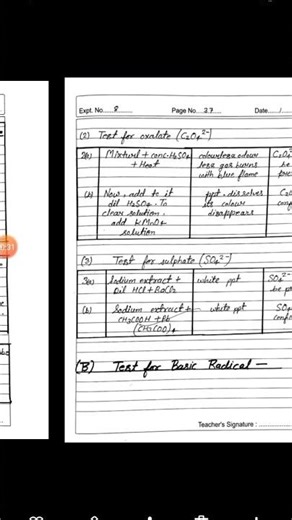 Expt. No. 8 Page No. 27 Date
(2) Test for oxalate (C₂O₄²⁻)
2(a) Mixture + conc. H₂SO₄ + Heat
colourless odour
less gas burns
with blue flame
C₂O₄²⁻
be
(b) Now, add to it
dil H₂SO₄. To
clear solution,
add KMnO₄
solution
ppt. dissolves
its colour
disappears
(3) Test for sulphate (SO₄²⁻)
3(a) Sodium extract +
Dil HCl + BaCl₂
white ppt
SO₄²⁻
be
(b) Sodium extract +
CH₃COOH + Pb
(CH₃COO)₂
white ppt
(B) Test for Basic Radical —
Teacher's Signature :